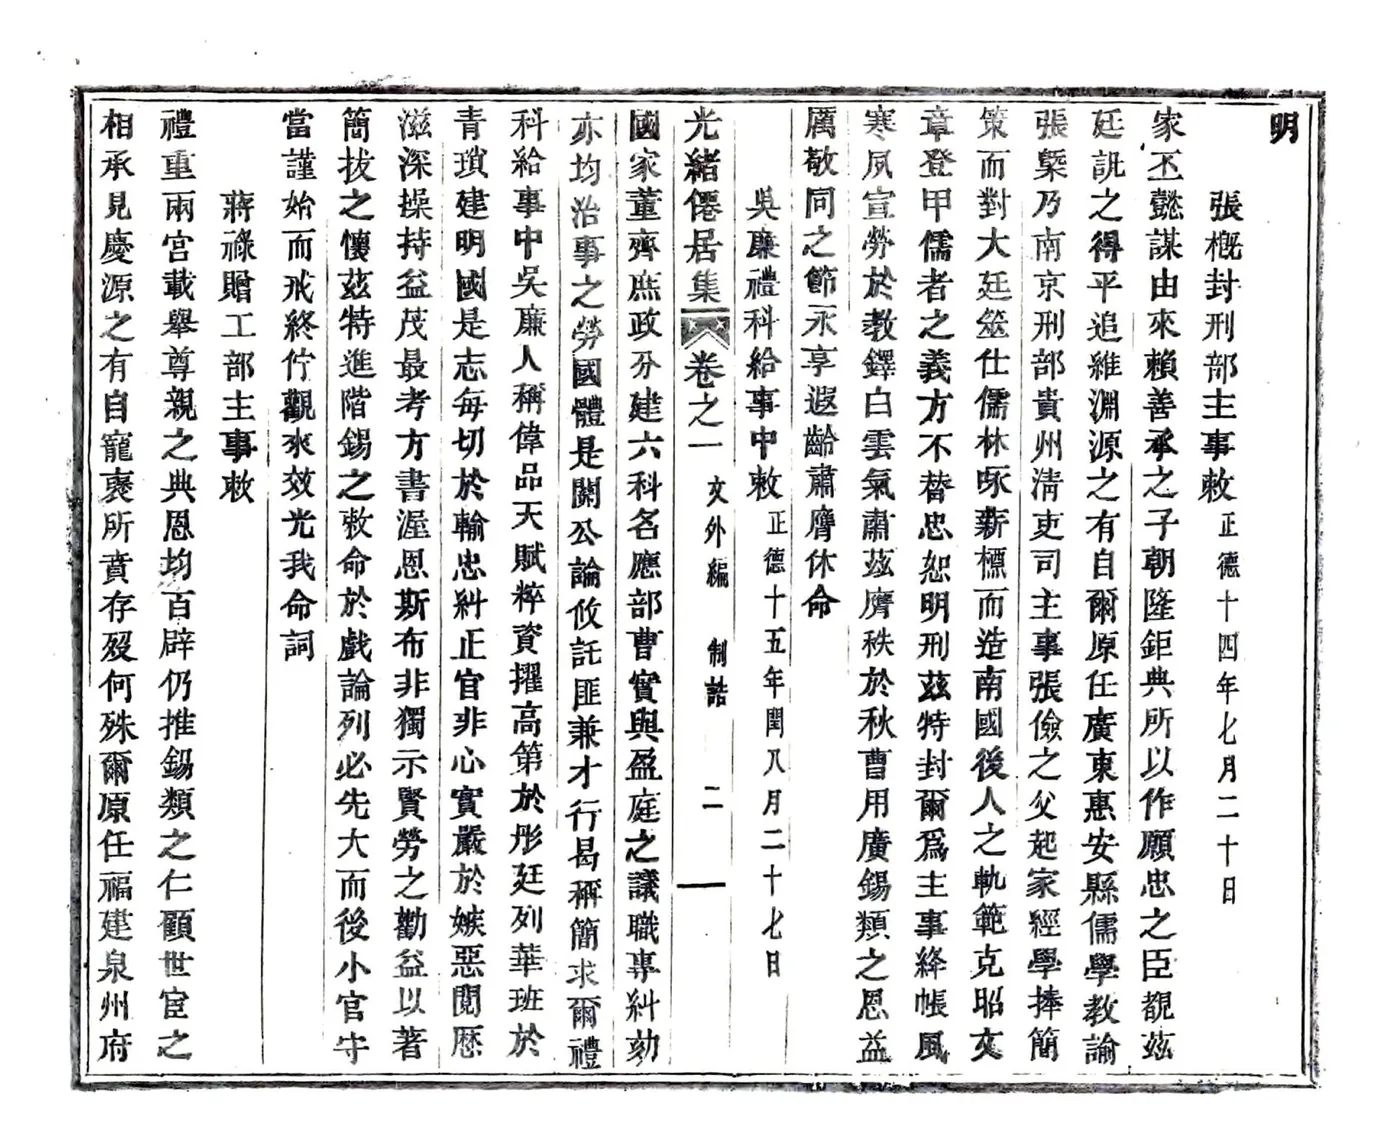 明
張槪封刑部主事敕正德十四年七月二十日
家丕懿謀由來賴善承之子朝隆鉅典所以作願忠之臣覩茲
廷訊之得平追維淵源之有自爾原任廣東惠安縣儒學教諭
張槩乃南京刑部貴州清吏司主事張儉之父起家經學捧簡
策而對大廷筮仕儒林咏薪標而造南國後人之軌範克昭文
章登甲儒者之義方不替忠恕明刑茲特封爾爲主事絳帳風
寒夙宣勞於教鐸白雲氣肅茲膺秩於秋曹用廣錫類之恩益
厲敬同之節永享遐齡肅膺休命
吳廉禮科給事中敕正德十五年閏八月二十七日
光緒僊居集 卷之一 文外編 制誥 二
國家董齊庶政分建六科名應部曹實與盈庭之議職專糾劾
亦均治事之勞國體是關公論攸託匪兼才行曷稱簡求爾禮
科給事中吳廉人稱偉品天賦粹資擢高第於彤廷列華班於
青瑣建明國是志每切於輸忠糾正官非心實嚴於嫉惡閱歷
滋深操持益茂最考方書渥恩斯布非獨示賢勞之勸益以著
簡拔之懷茲特進階錫之敕命於戲論列必先大而後小官守
當謹始而戒終佇觀來效光我命詞
蔣祿贈工部主事敕
禮重兩宮載舉尊親之典恩均百辟仍推錫類之仁顧世宦之
相承見慶源之有自寵褒所賁存歿何殊爾原任福建泉州府